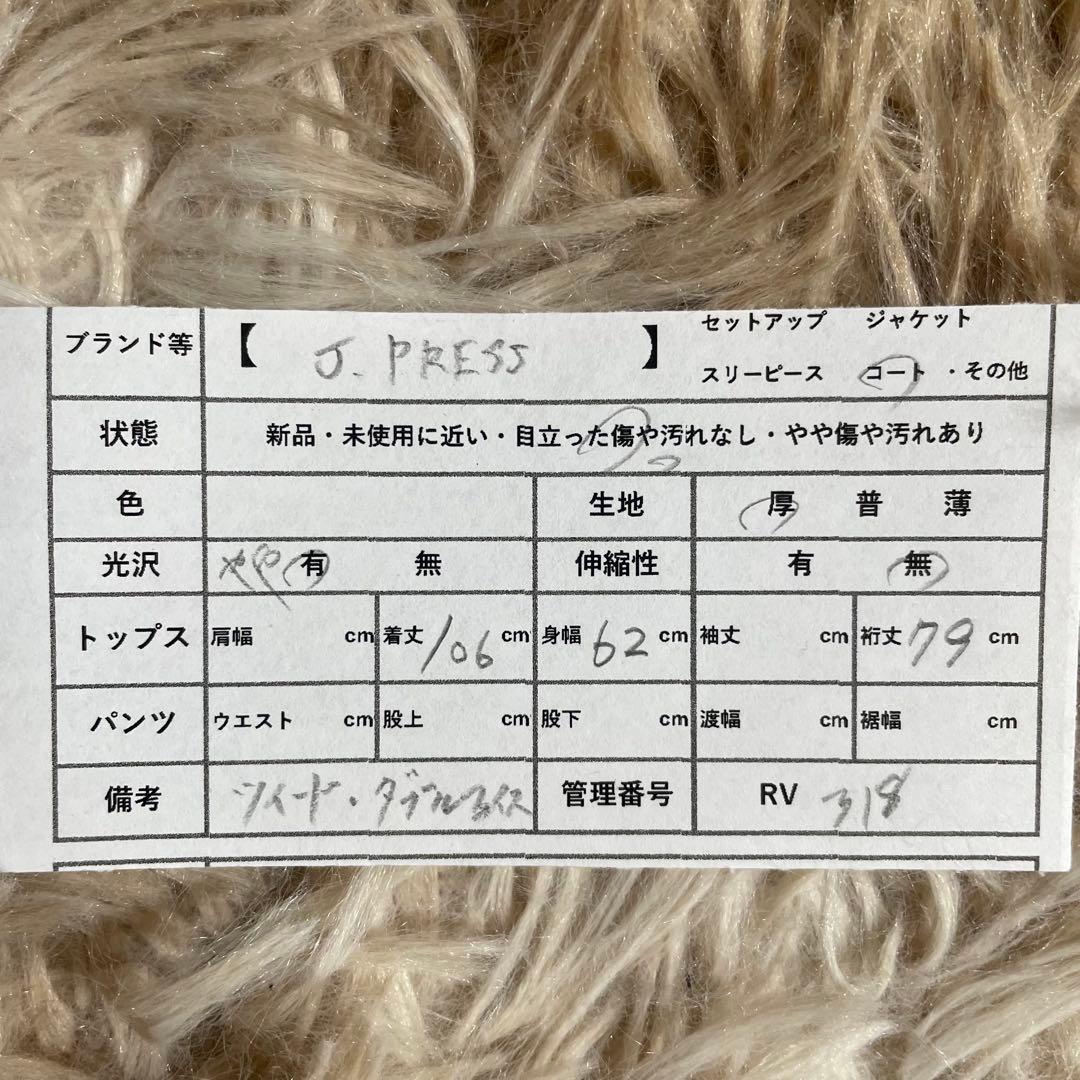 ブランド等 【 J. PRESS 】 セットアップ ジャケット
スリーピース コート ・その他
状態 新品・未使用に近い・目立った傷や汚れなし・やや傷や汚れあり
色 生地 厚 普 薄
光沢 やや 有 無 伸縮性 有 無
トップス 肩幅 cm 着丈 106 cm 身幅 62 cm 袖丈 cm 裄丈 79 cm
パンツ ウエスト cm 股上 cm 股下 cm 渡幅 cm 裾幅 cm
備考 ツイード・ダブルフェイス 管理番号 RV 318